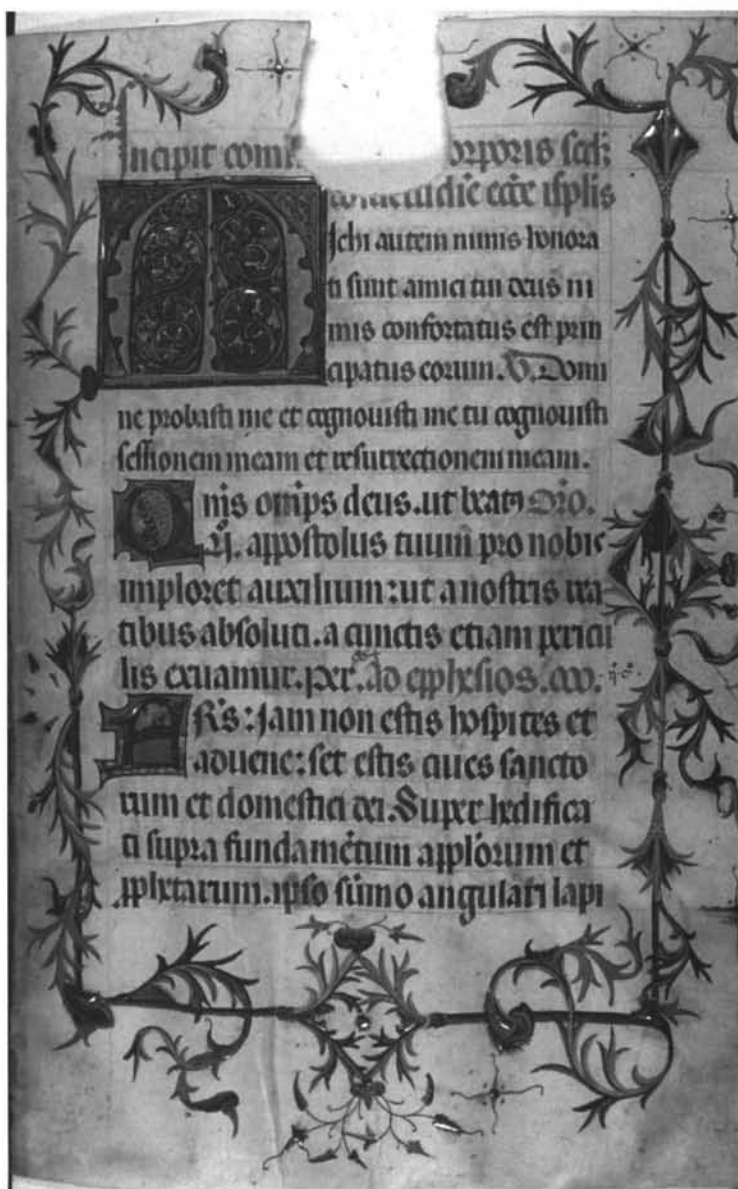 Incipit com orporis sctī
cōsuetudīe eccē ispľis
Michi autem nimis honora
ti sunt amici tui deus ni
mis confortatus est prin
cipatus eorum. V. Domi
ne probasti me et cognouisti me tu cognouisti
sessionem meam et resurrectionem meam.
Oṁis om̄ps deus. ut beatꝰ Oro.
N̄. appostolus tuum pro nobis
imploret auxilium: ut a nostris rea-
tibus absoluti. a cunctis etiam pericu
lis exuamur. per. ad ephesios.
FRs: Jam non estis hospites et
aduene: set estis ciues sancto
rum et domestici dei. Super hedifica
ti supra fundamētum applōrum et
pphetarum. ipso sūmo angulari lapi